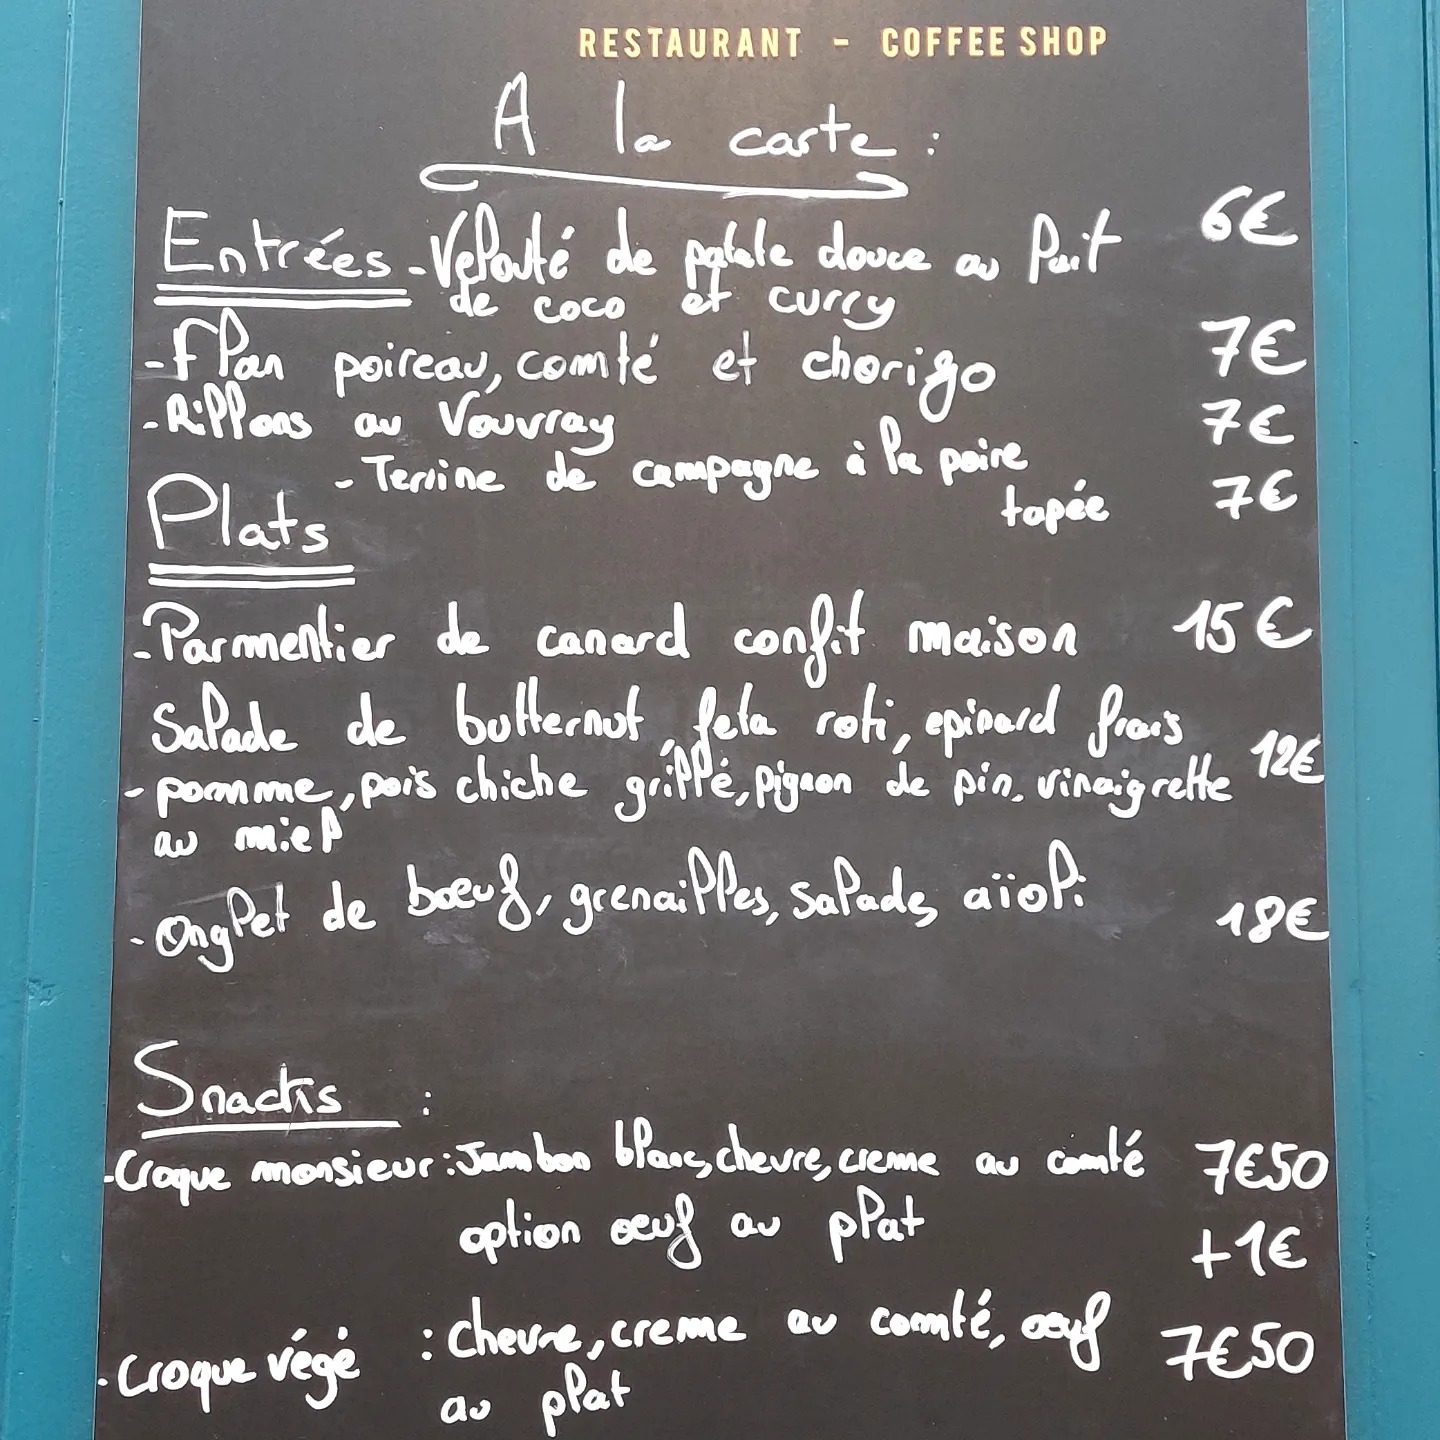 RESTAURANT - COFFEE SHOP
A la carte :
Entrées - Velouté de patate douce au lait 6€
de coco et curry
- Flan poireau, comté et chorizo 7€
- Rillons au Vouvray 7€
- Terrine de campagne à la poire
tapée 7€
Plats
- Parmentier de canard confit maison 15€
Salade de butternut, feta roti, epinard frais
- pomme, pois chiche grillé, pignon de pin, vinaigrette 12€
au miel
- Onglet de bœuf, grenailles, salade, aïoli 18€
Snacks :
- Croque monsieur : Jambon blanc, chevre, creme au comté 7€50
option oeuf au plat +1€
- Croque végé : chevre, creme au comté, oeuf 7€50
au plat